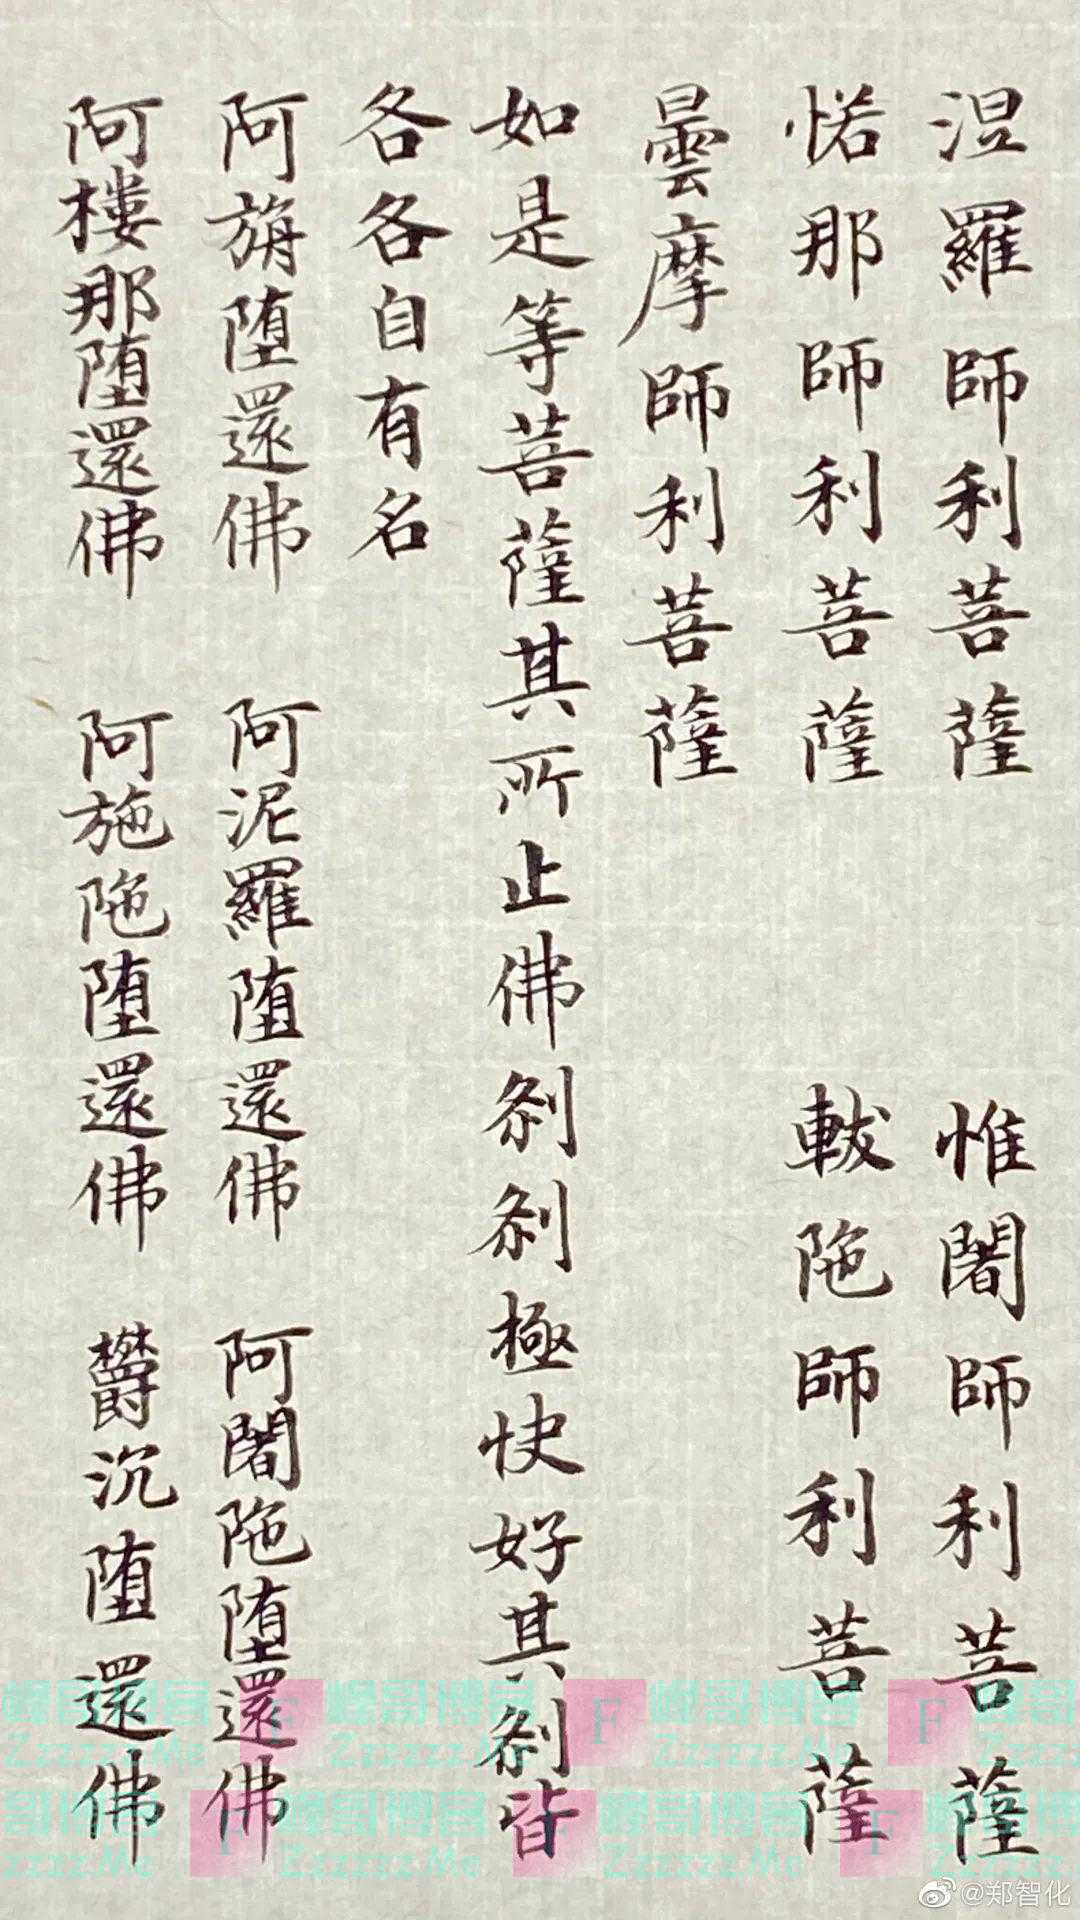 涅羅師利菩薩 惟闍師利菩薩
惒那師利菩薩 軷陁師利菩薩
曇摩師利菩薩
如是等菩薩其所止佛剎剎極快好其剎皆
各各自有名
阿旃堕還佛 阿泥羅堕還佛 阿闍陁堕還佛
阿樓那堕還佛 阿施陁堕還佛 欝沉堕還佛
峰哥博客
Zzzzzz.Me
F
@郑智化